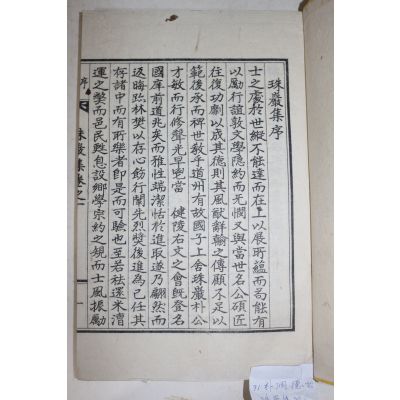 珠巖集序
士之處於世縱不能達而在上以展所蘊而苟能有
以勵行誼敦文學隱約而无憫又與當世名公碩匠
往復切劘以成其德則其風猷辭翰之傳顧不足以
範後承而裨世敎乎道州有故國子上舍珠巖朴公
才敏而行修聲光早蔚當 健陵右文之會旣登名
國庠前途兆矣而雅性端潔恬於進取遂乃翩然而
返晦跡林樊以存心飭行闡先烈奬後進爲己任其
存諸中而有所樂者卽是而可驗也至若祛還米漕
運之弊而邑民甦息設鄕學宗約之規而士風振勵
序
珠巖集卷之一
一